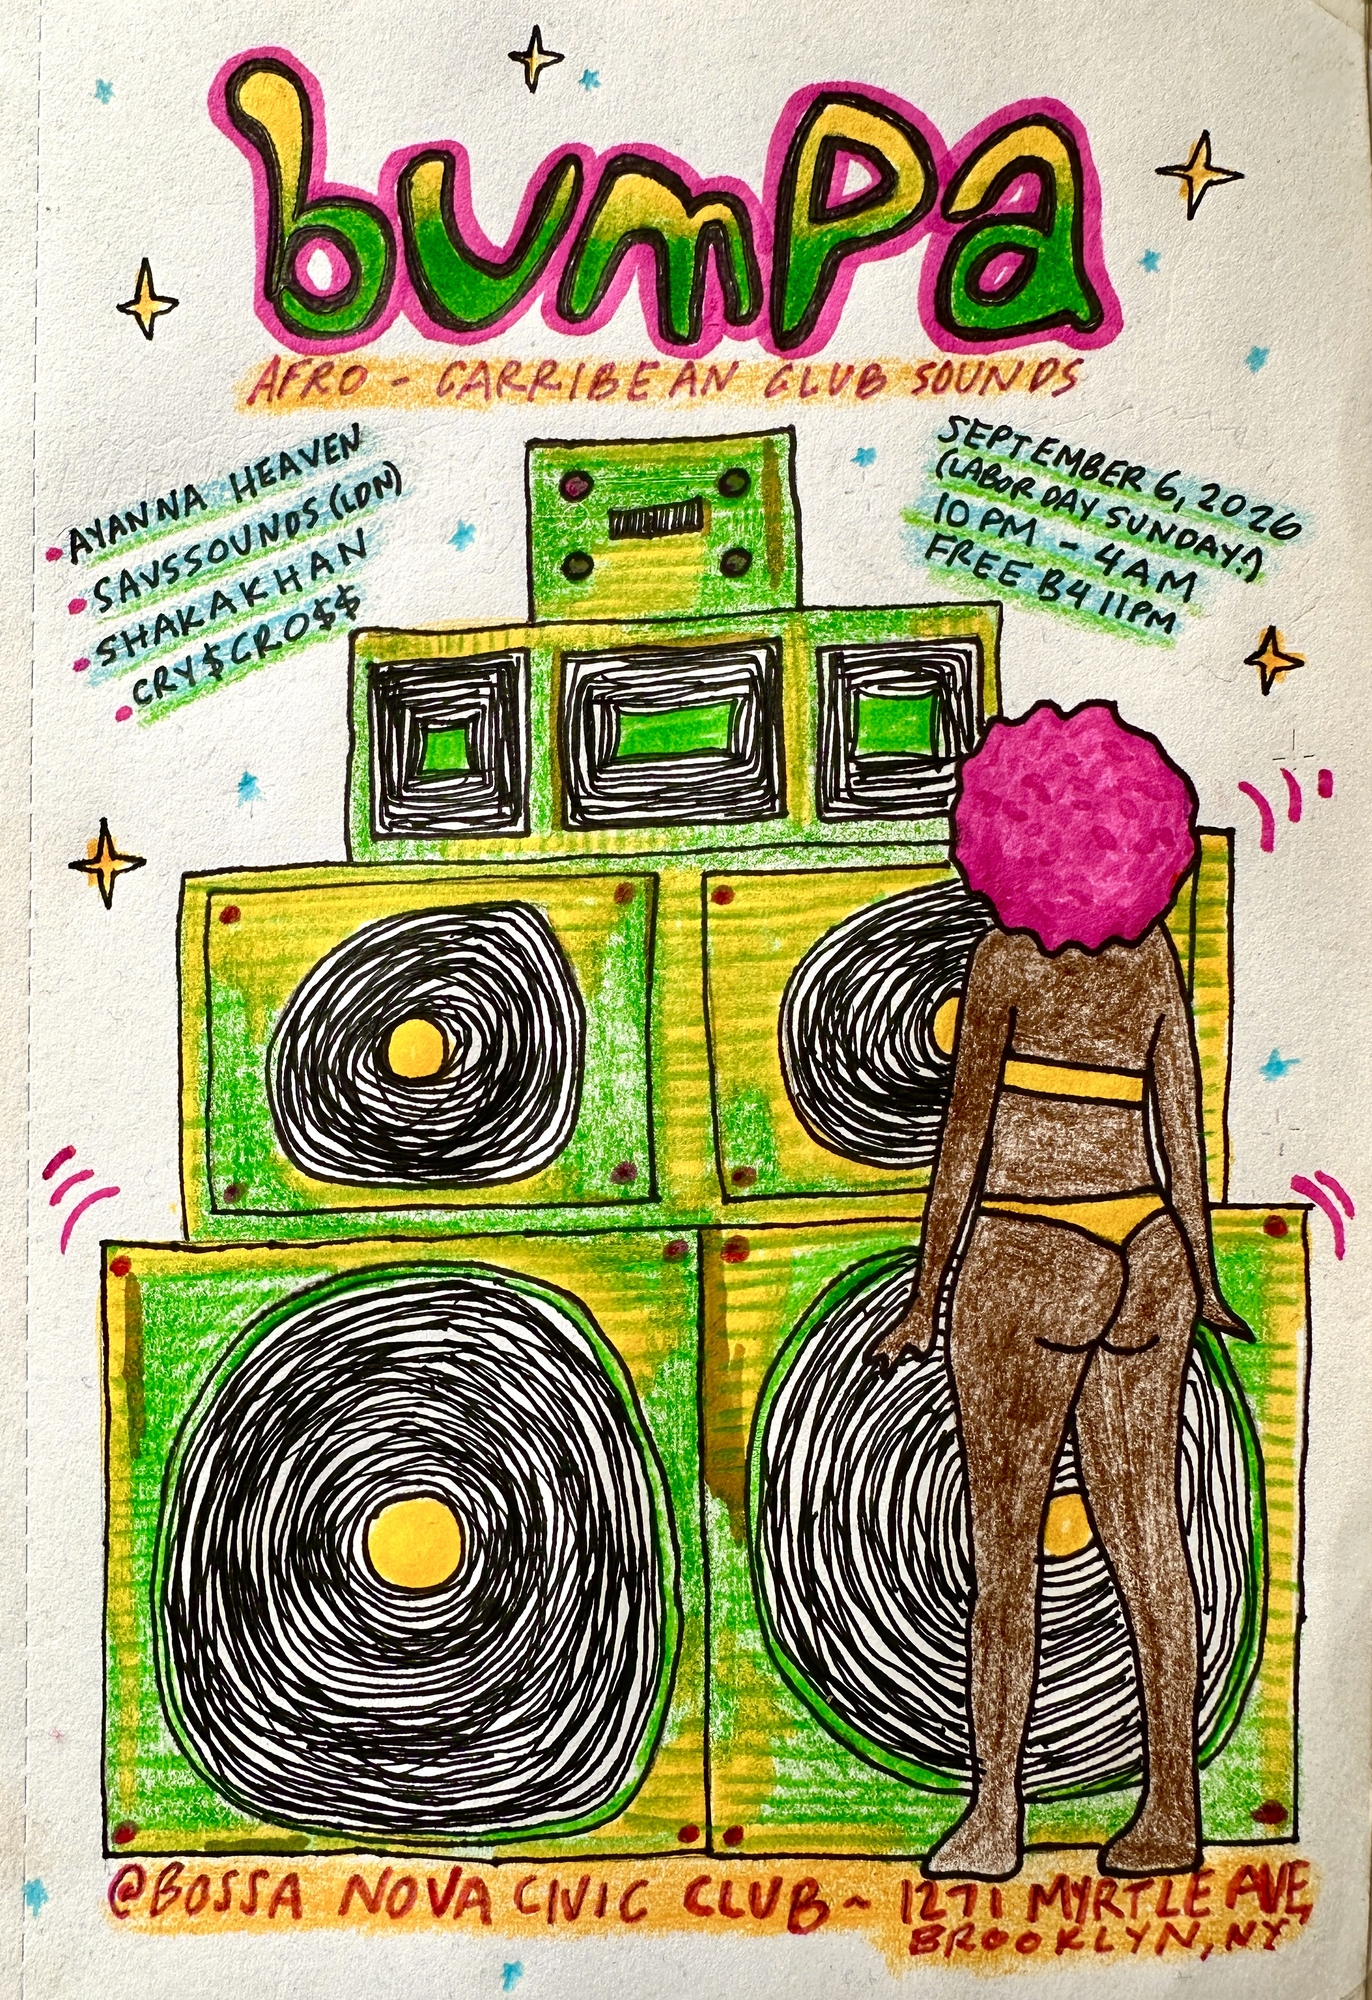 bumpa
AFRO - CARRIBEAN CLUB SOUNDS
AYANNA HEAVEN
SAVSSOUNDS (LDN)
SHAKAKHAN
CRY$CRO$$
SEPTEMBER 6, 2026
(LABOR DAY SUNDAY!)
10 PM - 4 AM
FREE B4 11PM
@BOSSA NOVA CIVIC CLUB ~ 1271 MYRTLE AVE,
BROOKLYN, NY